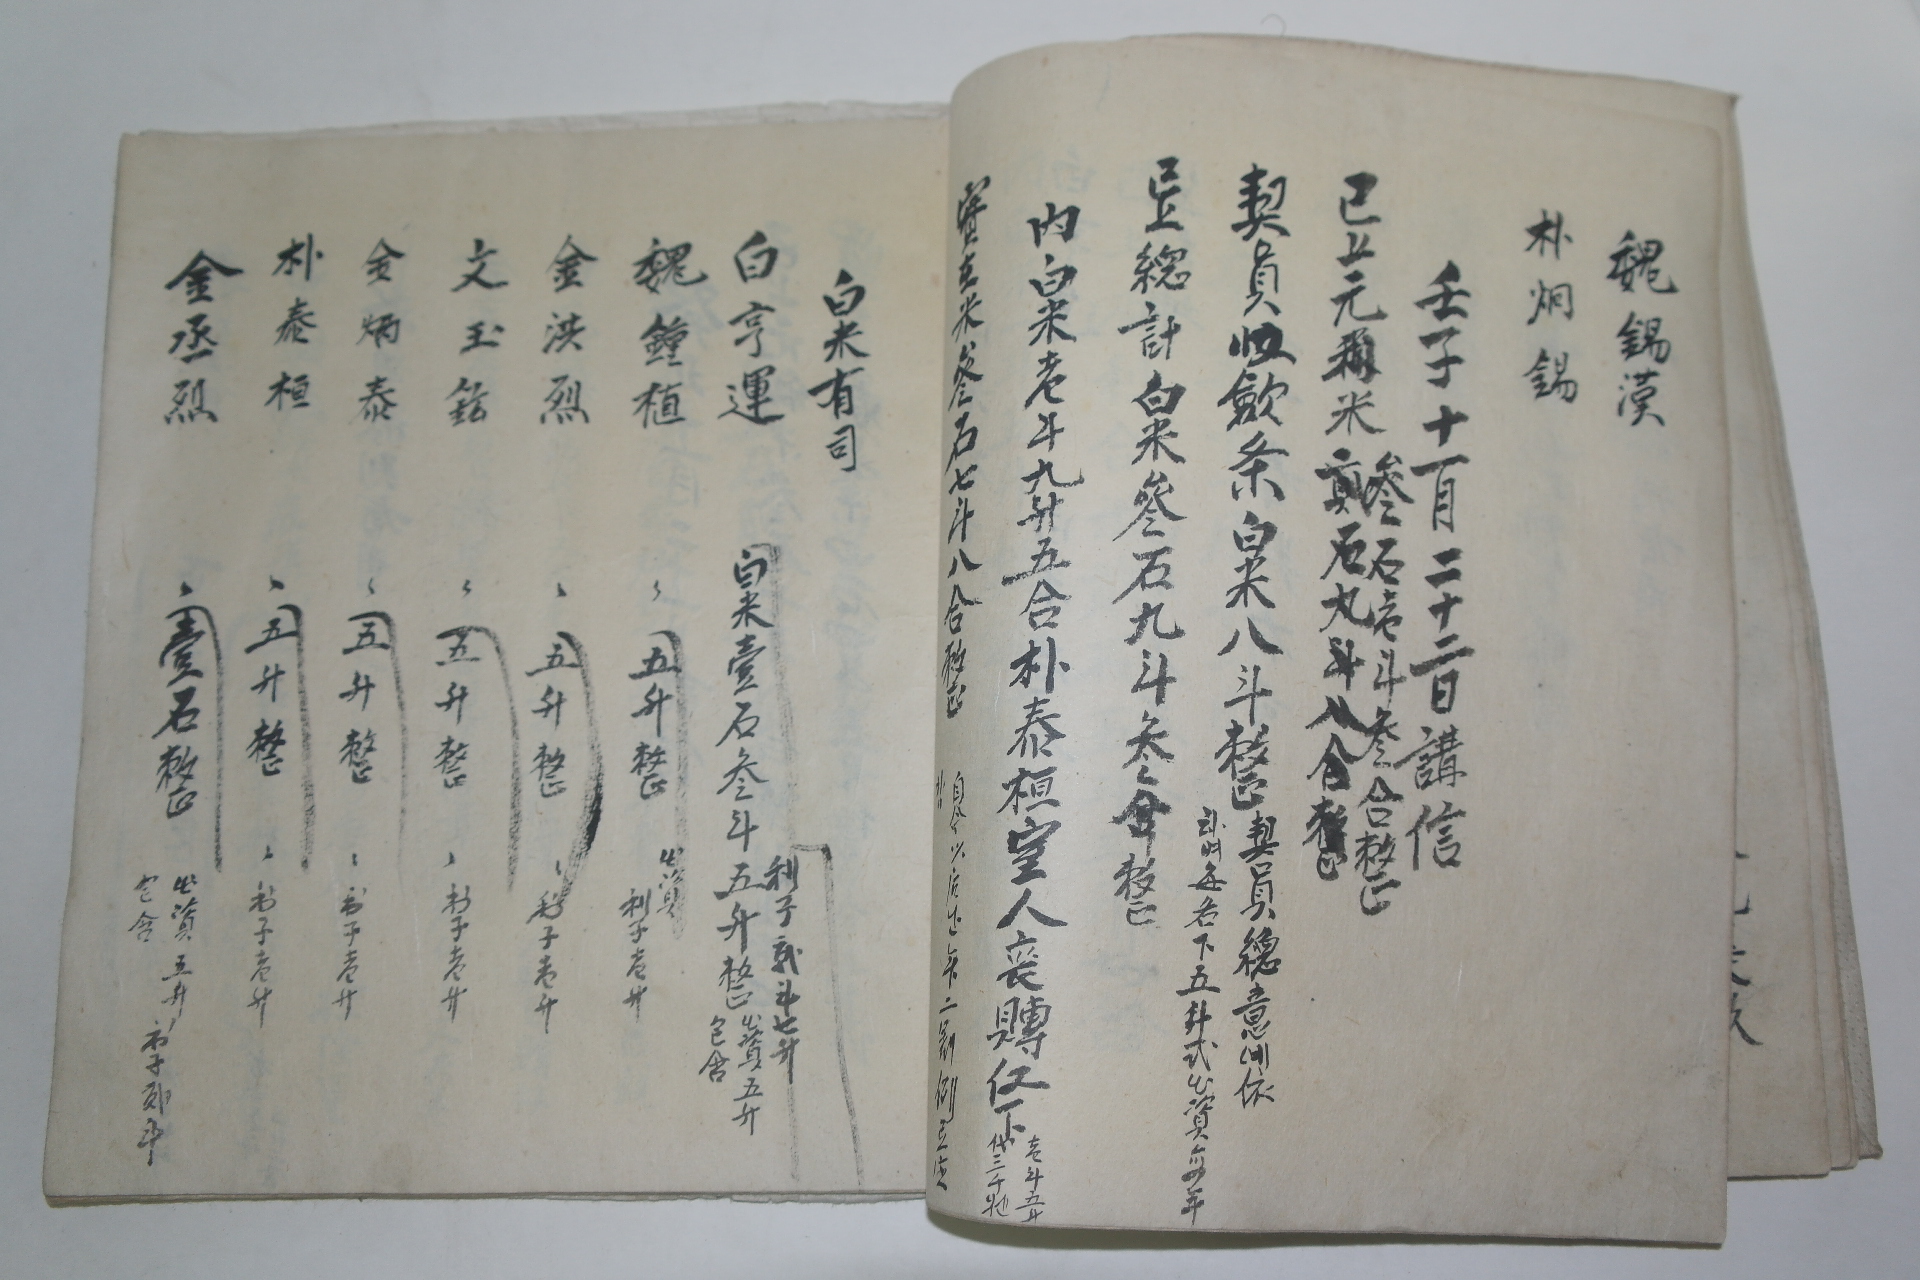 魏錫漢
朴炯錫
壬子十一月二十二日講信
參石壱斗參合整
已上元利米貳石九斗八合整
契員收斂条白米八斗整
契員總意依
每名下五升式出資
已上總計白米參石九斗參合整
內白米壱斗九升五合朴泰桓室人喪賻仁下
壱斗五升
實在米參石七斗八合整
白米有司
白亨運 白米壹石參斗五升整
利子貳斗七升
出資五升
包含
魏鍾植 五升整
出資
利子壱升
金洪烈 五升整 利子壱升
文玉鉉 五升整 利子壱升
金炳泰 五升整 利子壱升
朴泰桓 五升整 利子壱升
金丞烈 壹石整
出資五升
包含
利子貳斗